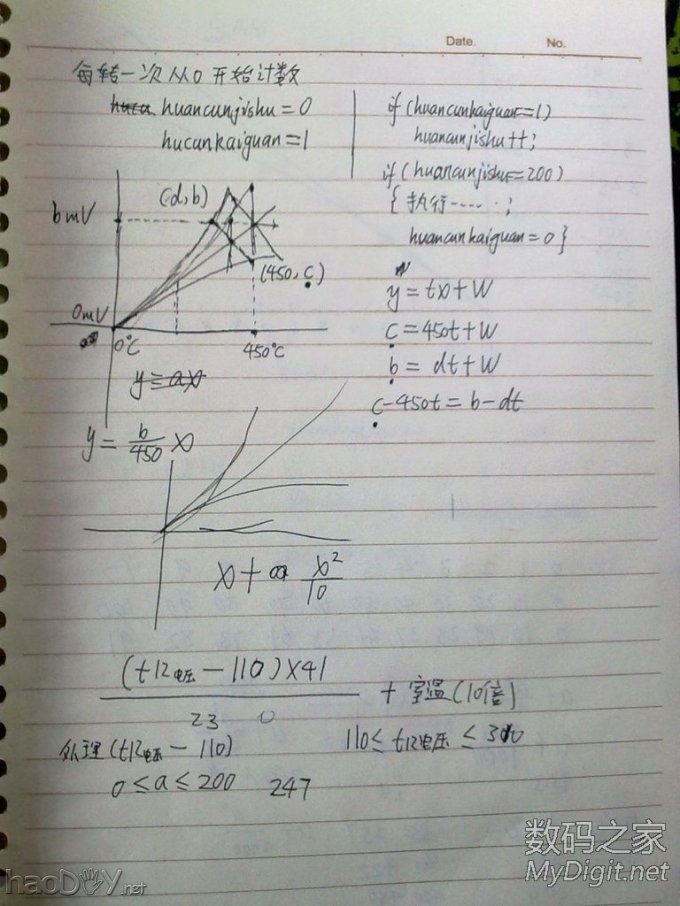 Date. No.
每转一次从0开始计数
huancunjishu=0
hucunkaiguan=1
if(huancunkaiguan=1)
huancunjishu++;
if(huancunjishu=200)
{执行-----·;
huancunkaiguan=0}
(d,b)
bmV
(450,c)
0mV
0℃
450℃
y=ax
y=tx+W
c=450t+W
b=dt+W
c-450t=b-dt
y=b/450 x
x+a x²/10
(t12电压-110)×41
23 0
+室温(10倍)
处理(t12电压-110)
110≤t12电压≤310
0≤a≤200 247
数码之家
MyDigit.net
haoDIY.net